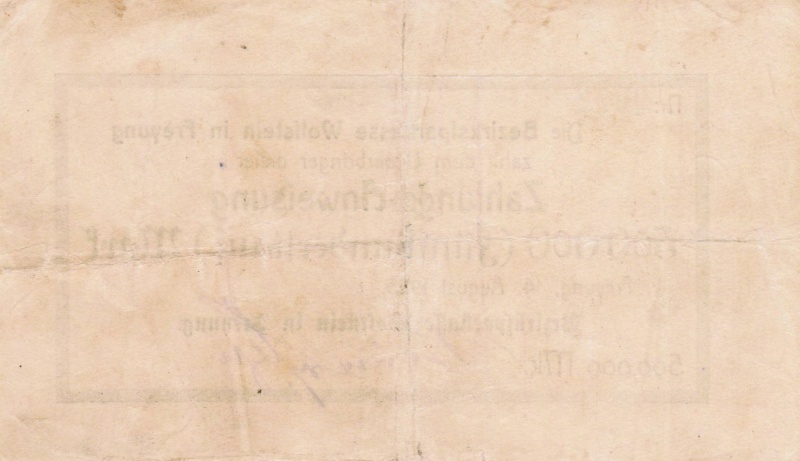 Nr.
Die Bezirkssparkasse Wolfstein in Freyung
zahlt dem Überbringer dieser
Zahlungs-Anweisung
500000 (Fünfhunderttausend) Mark
Freyung, 14. August 1923
Bezirkssparkasse Wolfstein in Freyung
500,000 Mk.